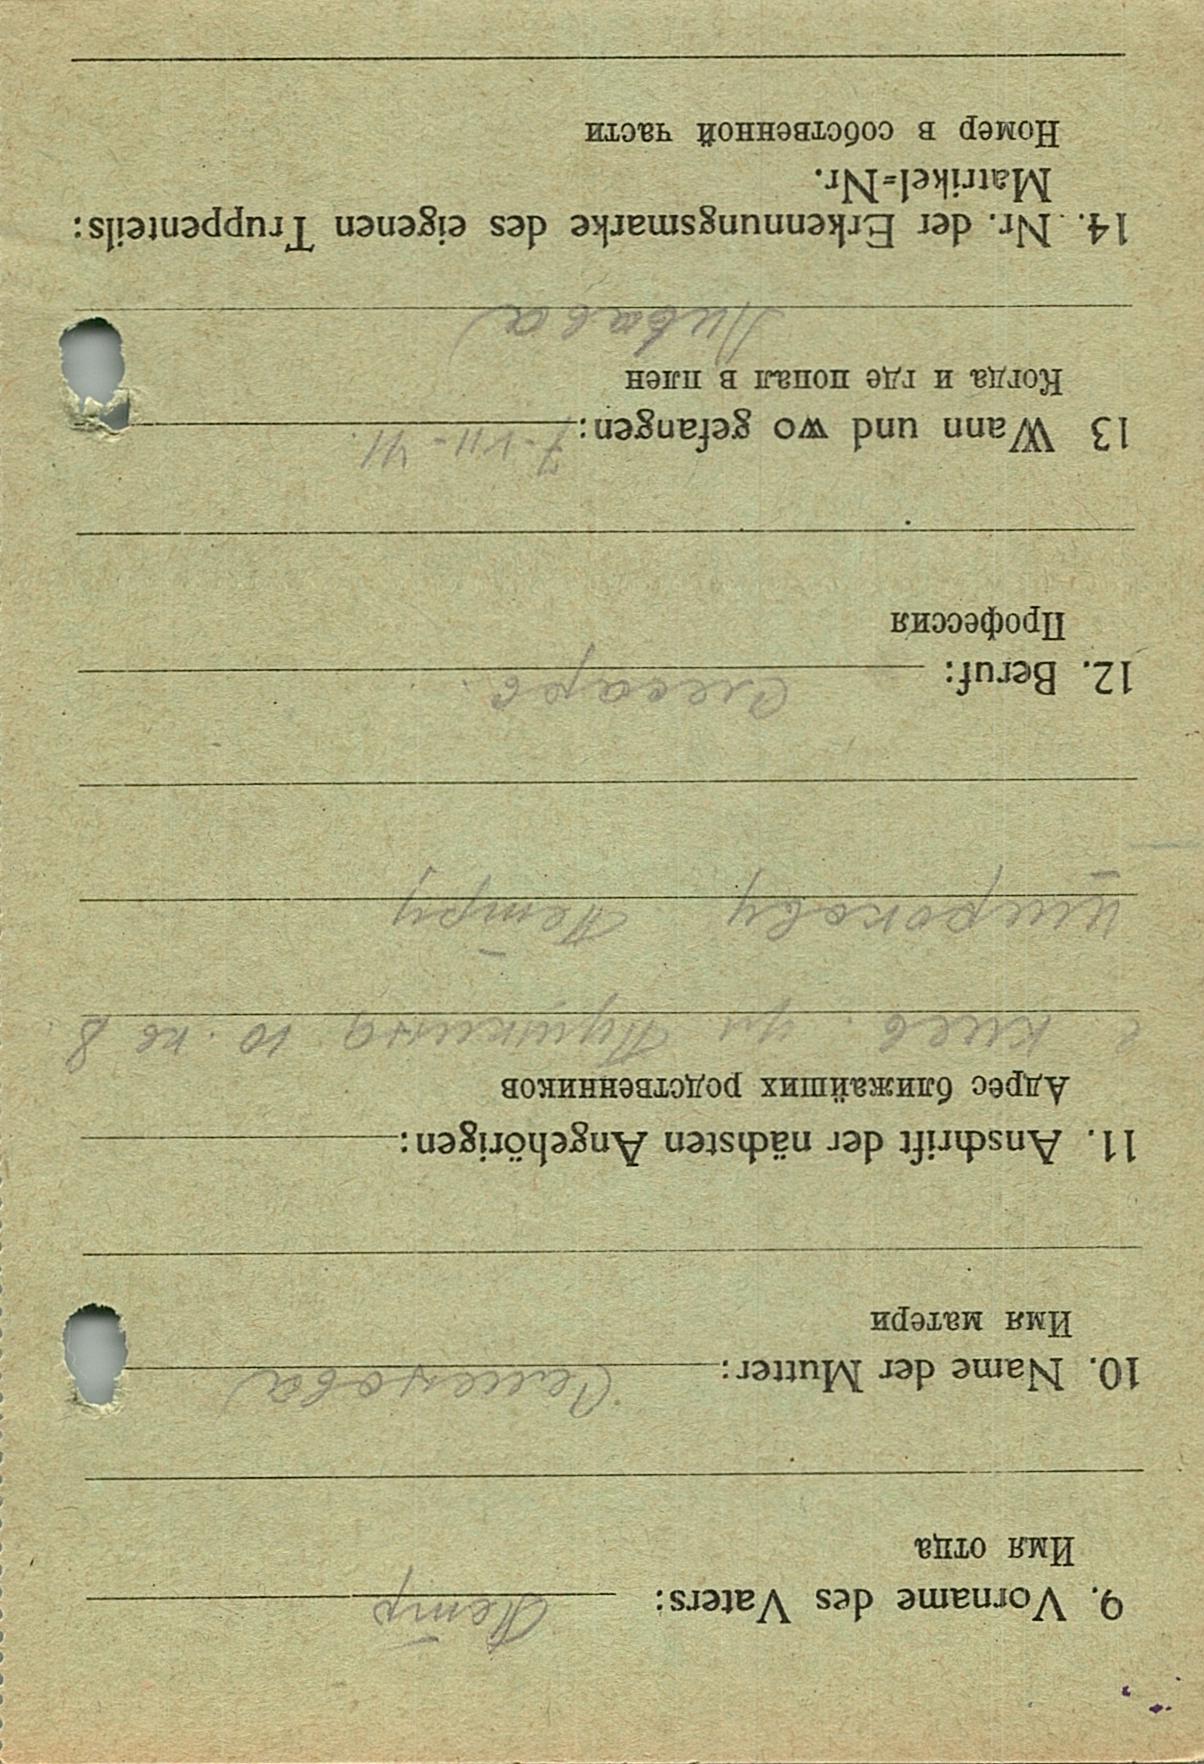 9. Vorname des Vaters: Петр
Имя отца
10. Name der Mutter: Семенова
Имя матери
11. Anschrift der nächsten Angehörigen:
Адрес ближайших родственников
г. Киев. ул Пушкина 10. кв 8.
Широкову Петру
12. Beruf: Слесарь.
Профессия
13 Wann und wo gefangen: 7-VII-41.
Когда и где попал в плен
Либава
14. Nr. der Erkennungsmarke des eigenen Truppenteils:
Matrikel=Nr.
Номер в собственной части